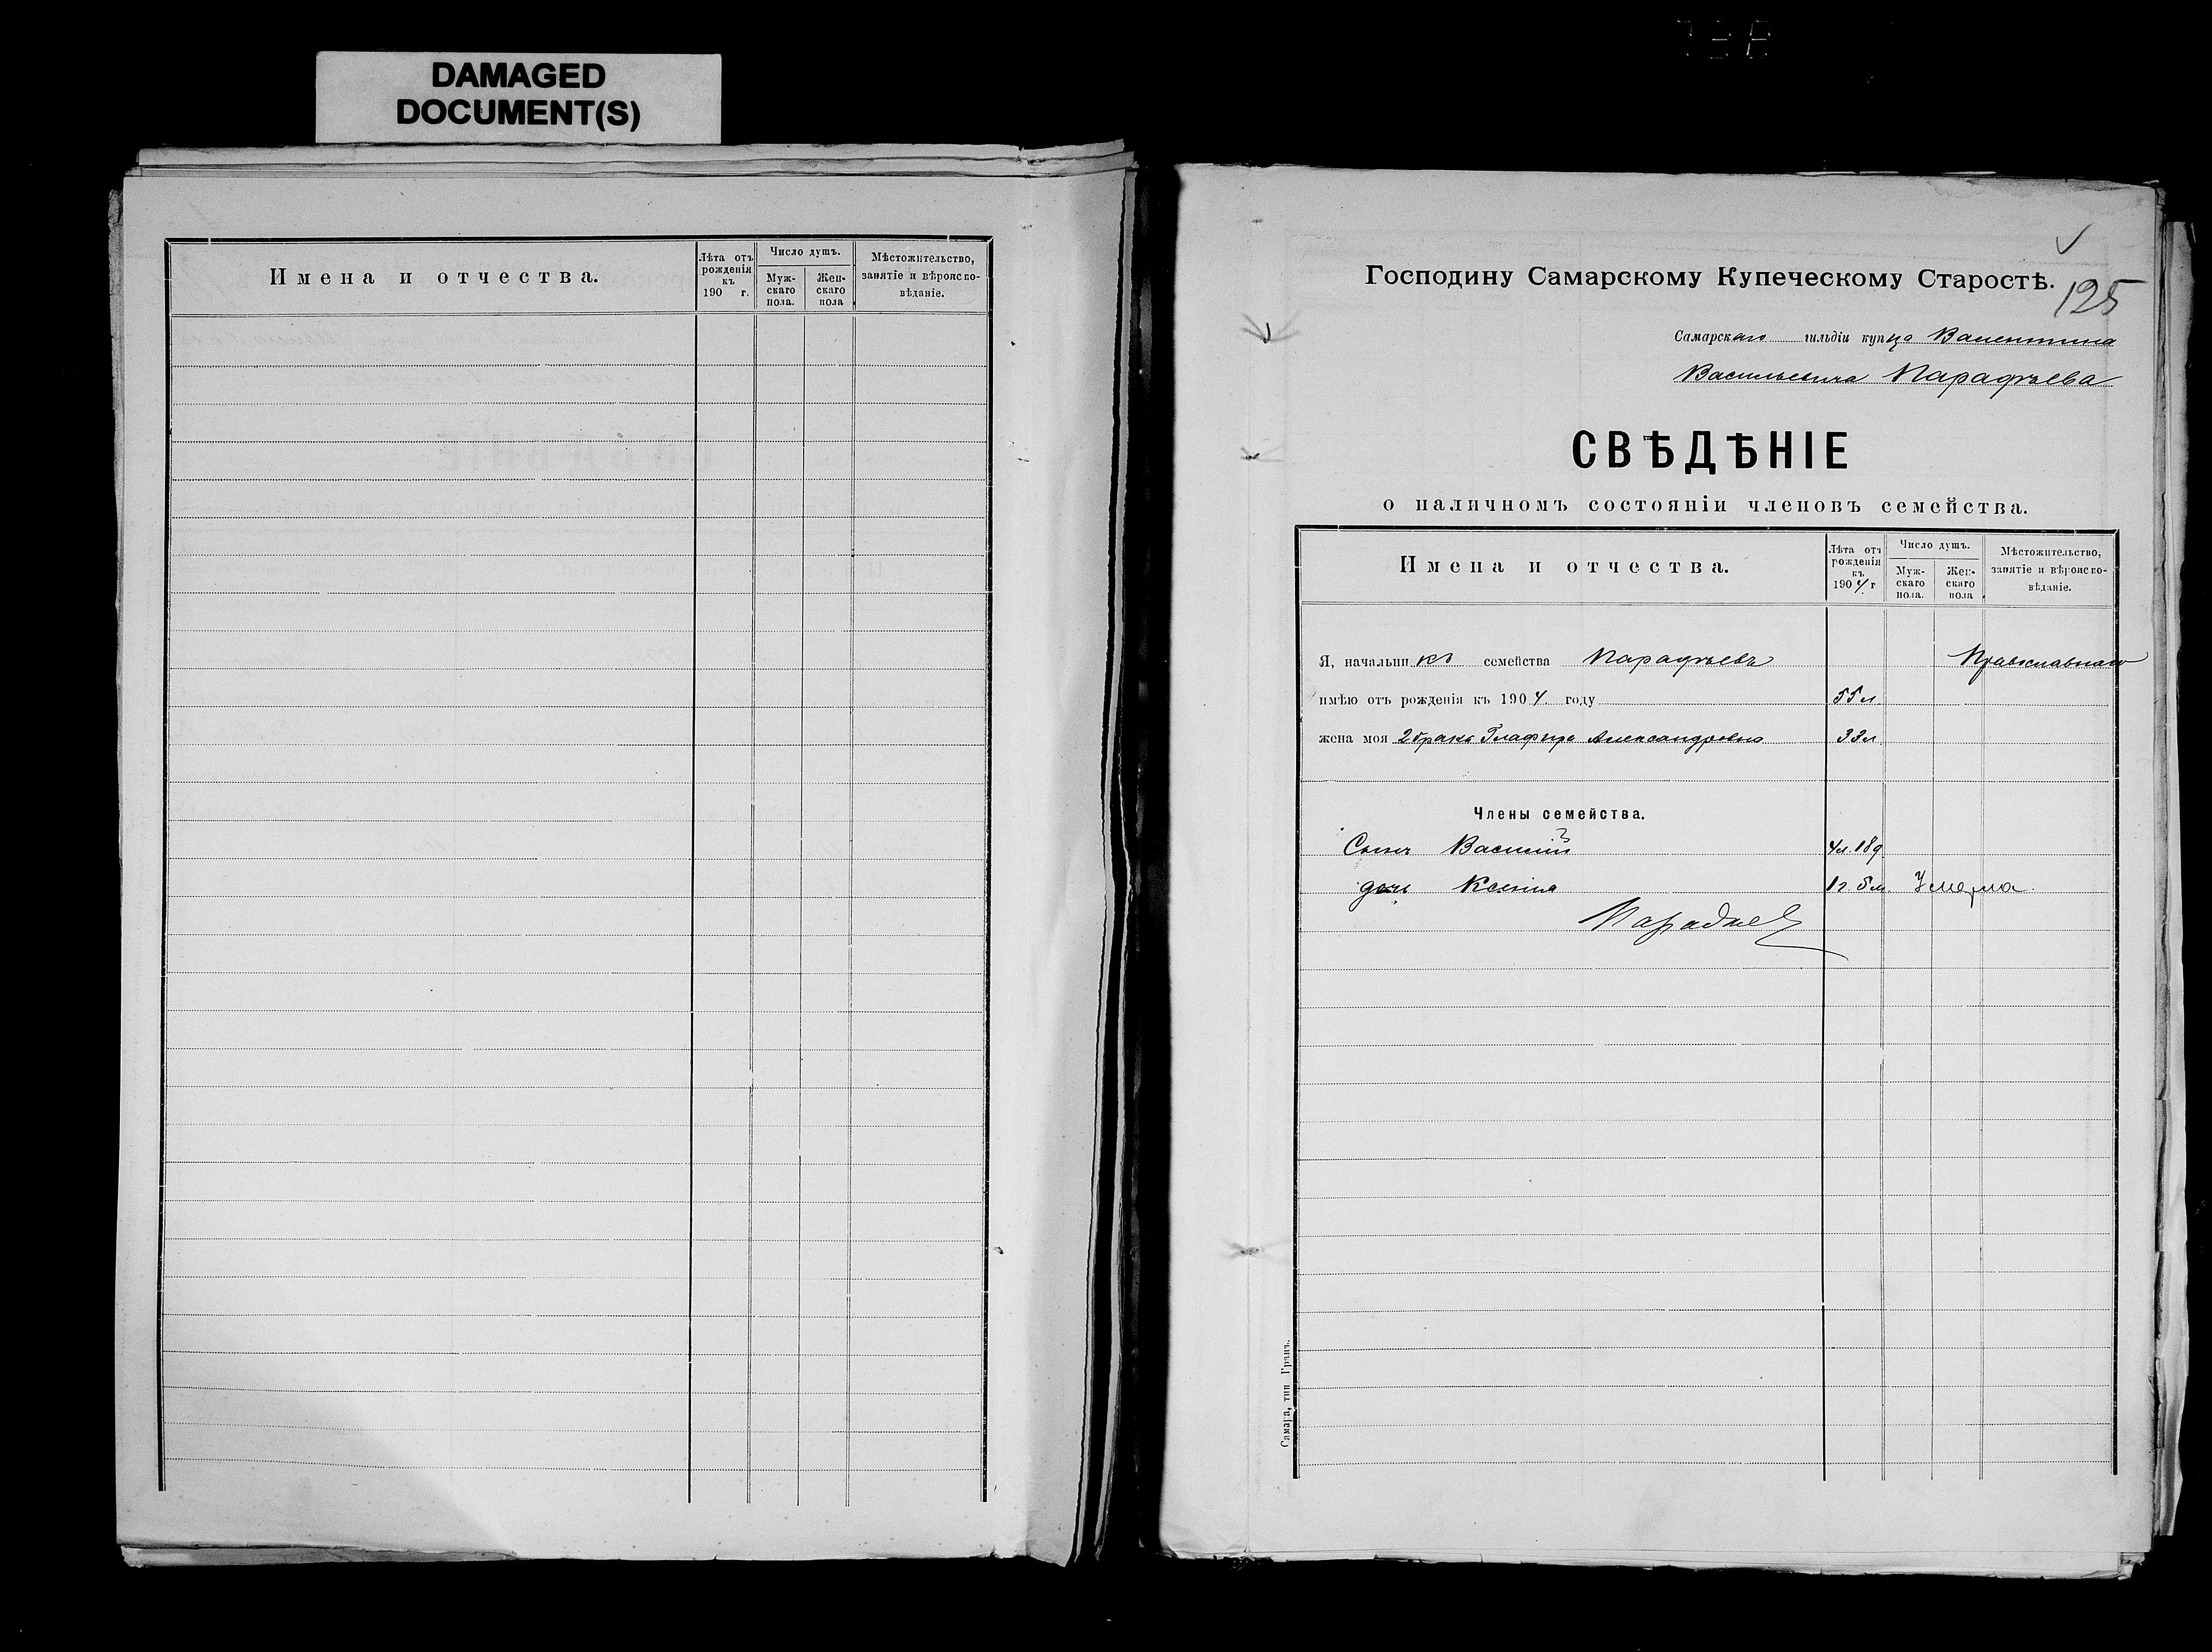 DAMAGED
DOCUMENT(S)
Имена и отчества.
Лѣта отъ рожденія къ 190 г.
Число душъ.
Мужскаго пола.
Женскаго пола
Мѣстожительство, занятіе и вѣроисповѣданіе.
Господину Самарскому Купеческому Старостѣ.
125
Самарскаго гильдіи купца Валентина
Васильевича Парафѣева
СВѢДѢНІЕ
о наличномъ состояніи членовъ семейства.
Имена и отчества.
Лѣта отъ рожденія къ 1904 г
Число душъ.
Мужскаго пола.
Женскаго пола
Мѣстожительство, занятіе и вѣроисповѣданіе.
Я, начальникъ семейства Парафѣевъ Православнаго
имѣю отъ рожденія къ 1904. году 55 л.
жена моя 2 брака Глафира Александровна 33 л.
Члены семейства.
Сынъ Василій 4 л. 18 д
дочь Ксенія 1 г. 5 м. Умерла.
Самара, тип Гранъ.